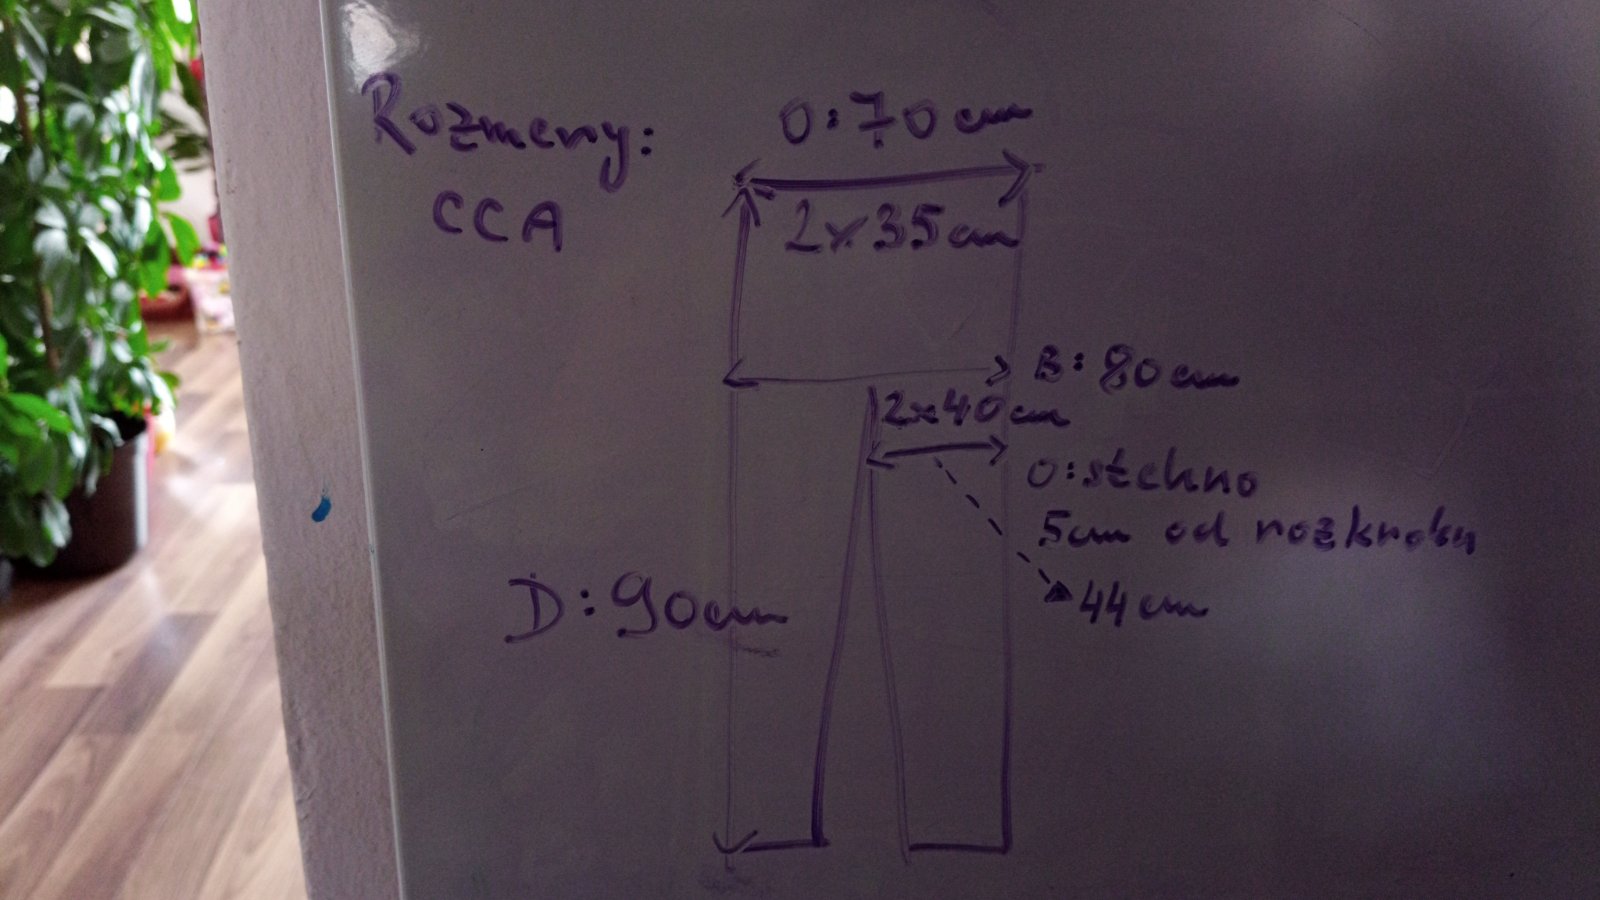 Rozmery:
CCA
O:70cm
2x35cm
B:80cm
2x40cm
O:stehno
5cm od rozkroku
44cm
D:90cm